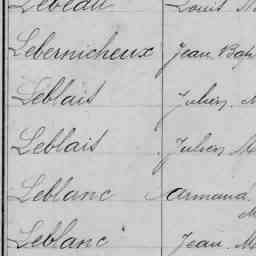 Lebeau Louis
Lebernicheux Jean Bap
Leblais Julien. M
Leblais Julien M
Leblanc Armand.
M
Leblanc Jean. M